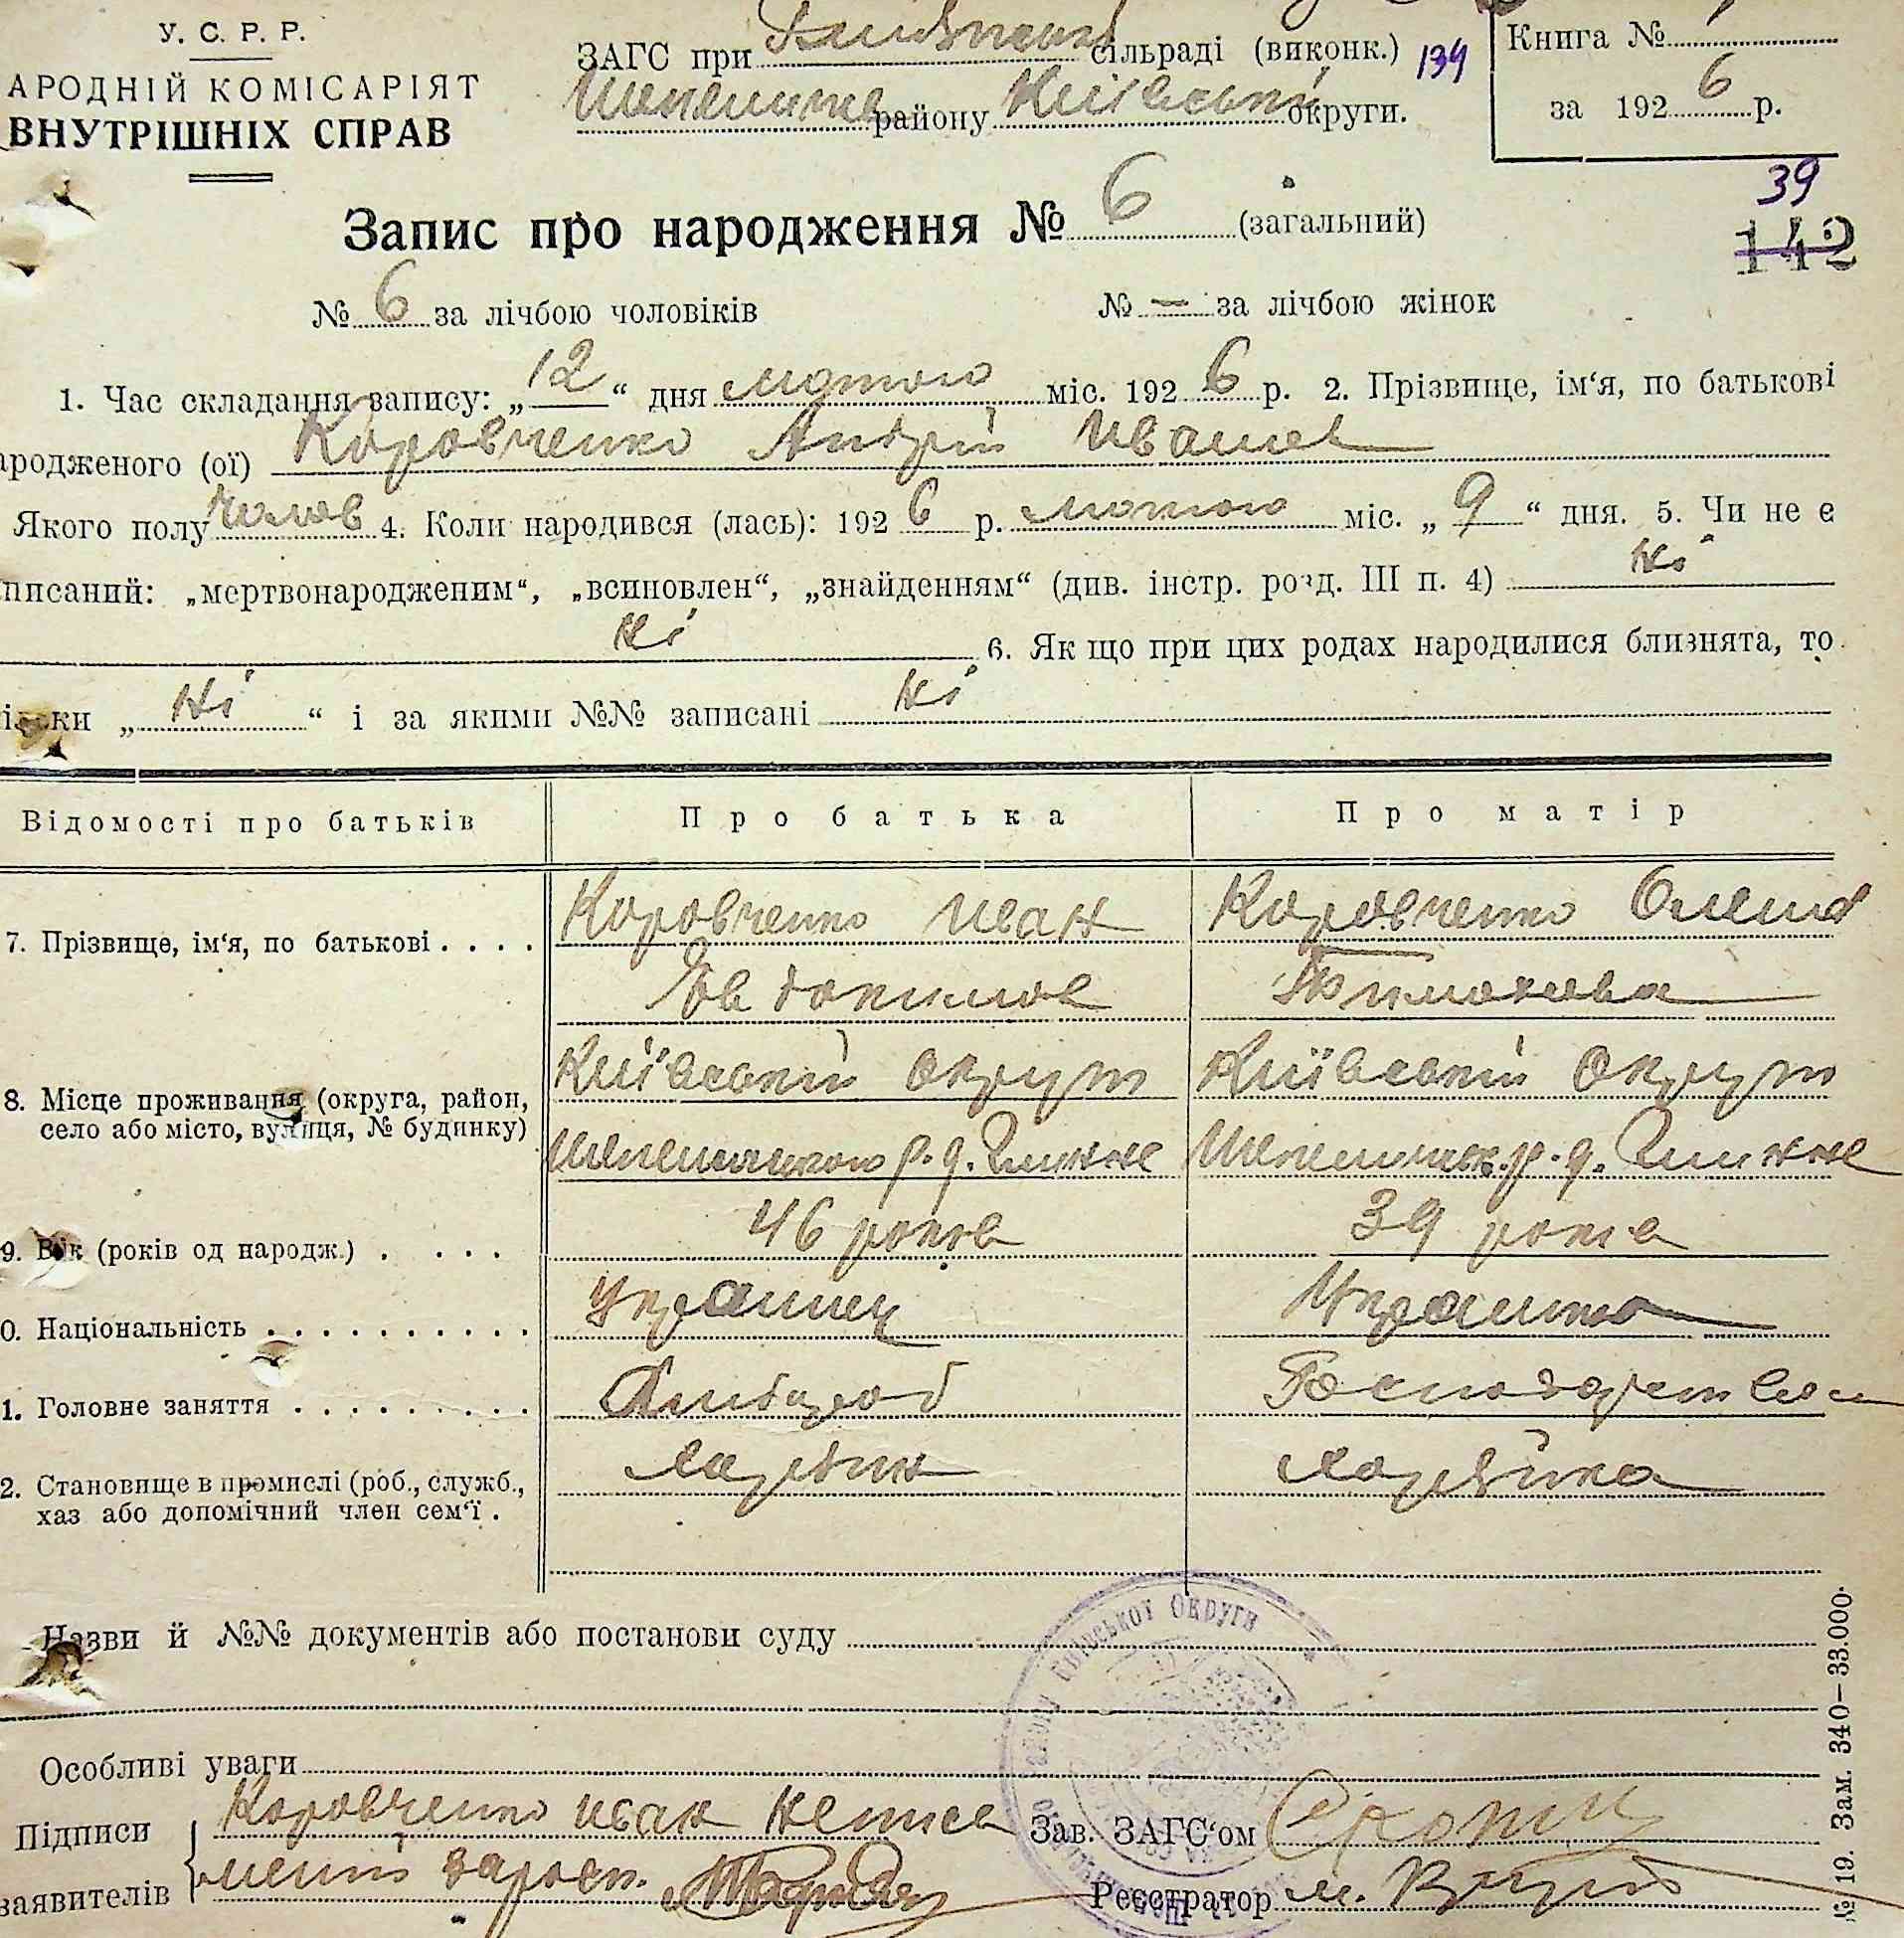 У. С. Р. Р.
АРОДНІЙ КОМІСАРІЯТ
ВНУТРІШНІХ СПРАВ
ЗАГС при сільраді (виконк.) 134
району Київській округи.
Книга №
за 1926 р.
39
142
Запис про народження № 6 (загальний)
№ 6 за лічбою чоловіків № — за лічбою жінок
1. Час складання запису: „12“ дня лютого міс. 1926 р. 2. Прізвище, ім‘я, по батькові
ародженого (ої) Коровченко Андрій Иванов
Якого полу Чолов 4. Коли народився (лась): 1926 р. лютого міс. „9“ дня. 5. Чи не є
писаний: „мертвонародженим“, „всиновлен“, „знайденням“ (див. інстр. розд. III п. 4) Ні
Ні 6. Як що при цих родах народилися близнята, то
ільки „Ні“ і за якими №№ записані Ні
Відомості про батьків Про батька Про матір
7. Прізвище, ім‘я, по батькові . . . . Коровченко Иван Коровченко Олена
Овдокимов
8. Місце проживання (округа, район, село або місто, вулиця, № будинку) Київській округи Київській округи
р. д. Глинне р. д. Глинне
9. Вік (років од народж.) . . . . 46 років 39 років
0. Національність . . . . . . . . . . Украинец Украинка
1. Головне заняття . . . . . . . . . Хлибороб
2. Становище в промислі (роб., служб., хаз або допомічний член сем‘ї .
Назви й №№ документів або постанови суду
Особливі уваги
Підписи Коровченко иван непись
заявителів менний
Зав. ЗАГС‘ом
Реєстратор М.
ОКРУГИ
№ 19. Зам. 340—33.000.